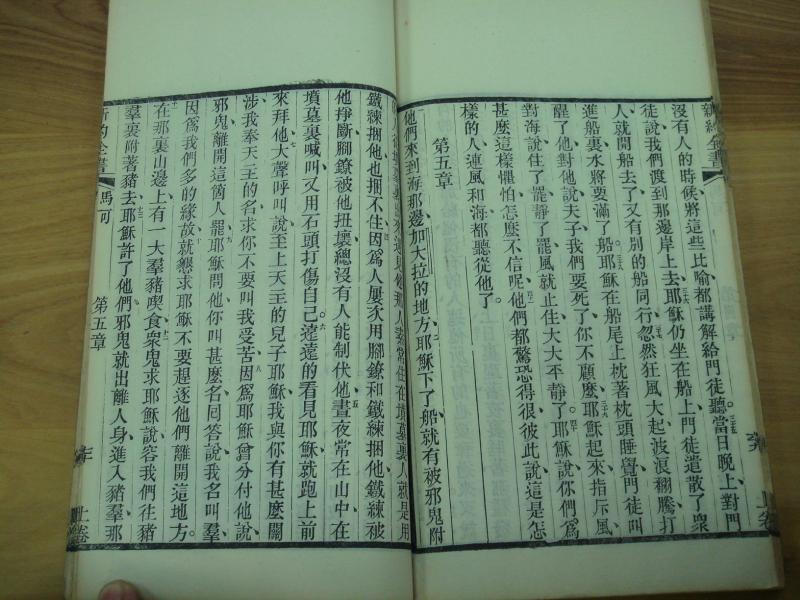 新約全書
上卷
沒有人的時候、將這些比喻都講解給門徒聽。三十五當日晚上、對門
徒說、我們渡到那邊岸上去、三十六耶穌仍坐在船上、門徒遣散了衆
人、就開船去了、又有別的船同行、三十七忽然狂風大起、波浪翻騰、打
進船裏、水將要滿了船、三十八耶穌在船尾上、枕著枕頭睡覺、門徒叫
醒了他、對他說、夫子、我們要死了、你不顧麼、三十九耶穌起來、指斥風、
對海說、住了罷、靜了罷、風就止住、大大平靜了。四十耶穌說、你們爲
甚麼這樣懼怕、怎麼不信呢、他們都驚恐得很、彼此說、這是怎
樣的人、連風和海都聽從他了。
第五章
他們來到海那邊加大拉的地方、二耶穌下了船、就有被邪鬼附
人就是用
鐵鍊捆他、也捆不住、四因爲人屢次用腳鐐和鐵鍊捆他、鐵鍊被
他掙斷、腳鐐被他扭壞、總沒有人能制伏他、五晝夜常在山中、在
墳墓裏喊叫、又用石頭打傷自己。六遠遠的看見耶穌、就跑上前
來拜他、七大聲呼叫說、至上天主的兒子耶穌、我與你有甚麼關
涉、我奉天主的名求你、不要叫我受苦、八因爲耶穌曾分付他說、
邪鬼離開這箇人罷、九耶穌問他、你叫甚麼名、回答說、我名叫羣、
因爲我們多的緣故、十就懇求耶穌、不要趕逐他們離開這地方。
十一在那裏山邊上、有一大羣豬喫食、十二衆鬼求耶穌說、容我們往豬
羣裏附著豬去、十三耶穌許了他們、邪鬼就出離人身、進入豬羣、那
新約全書
馬可
第五章
上卷